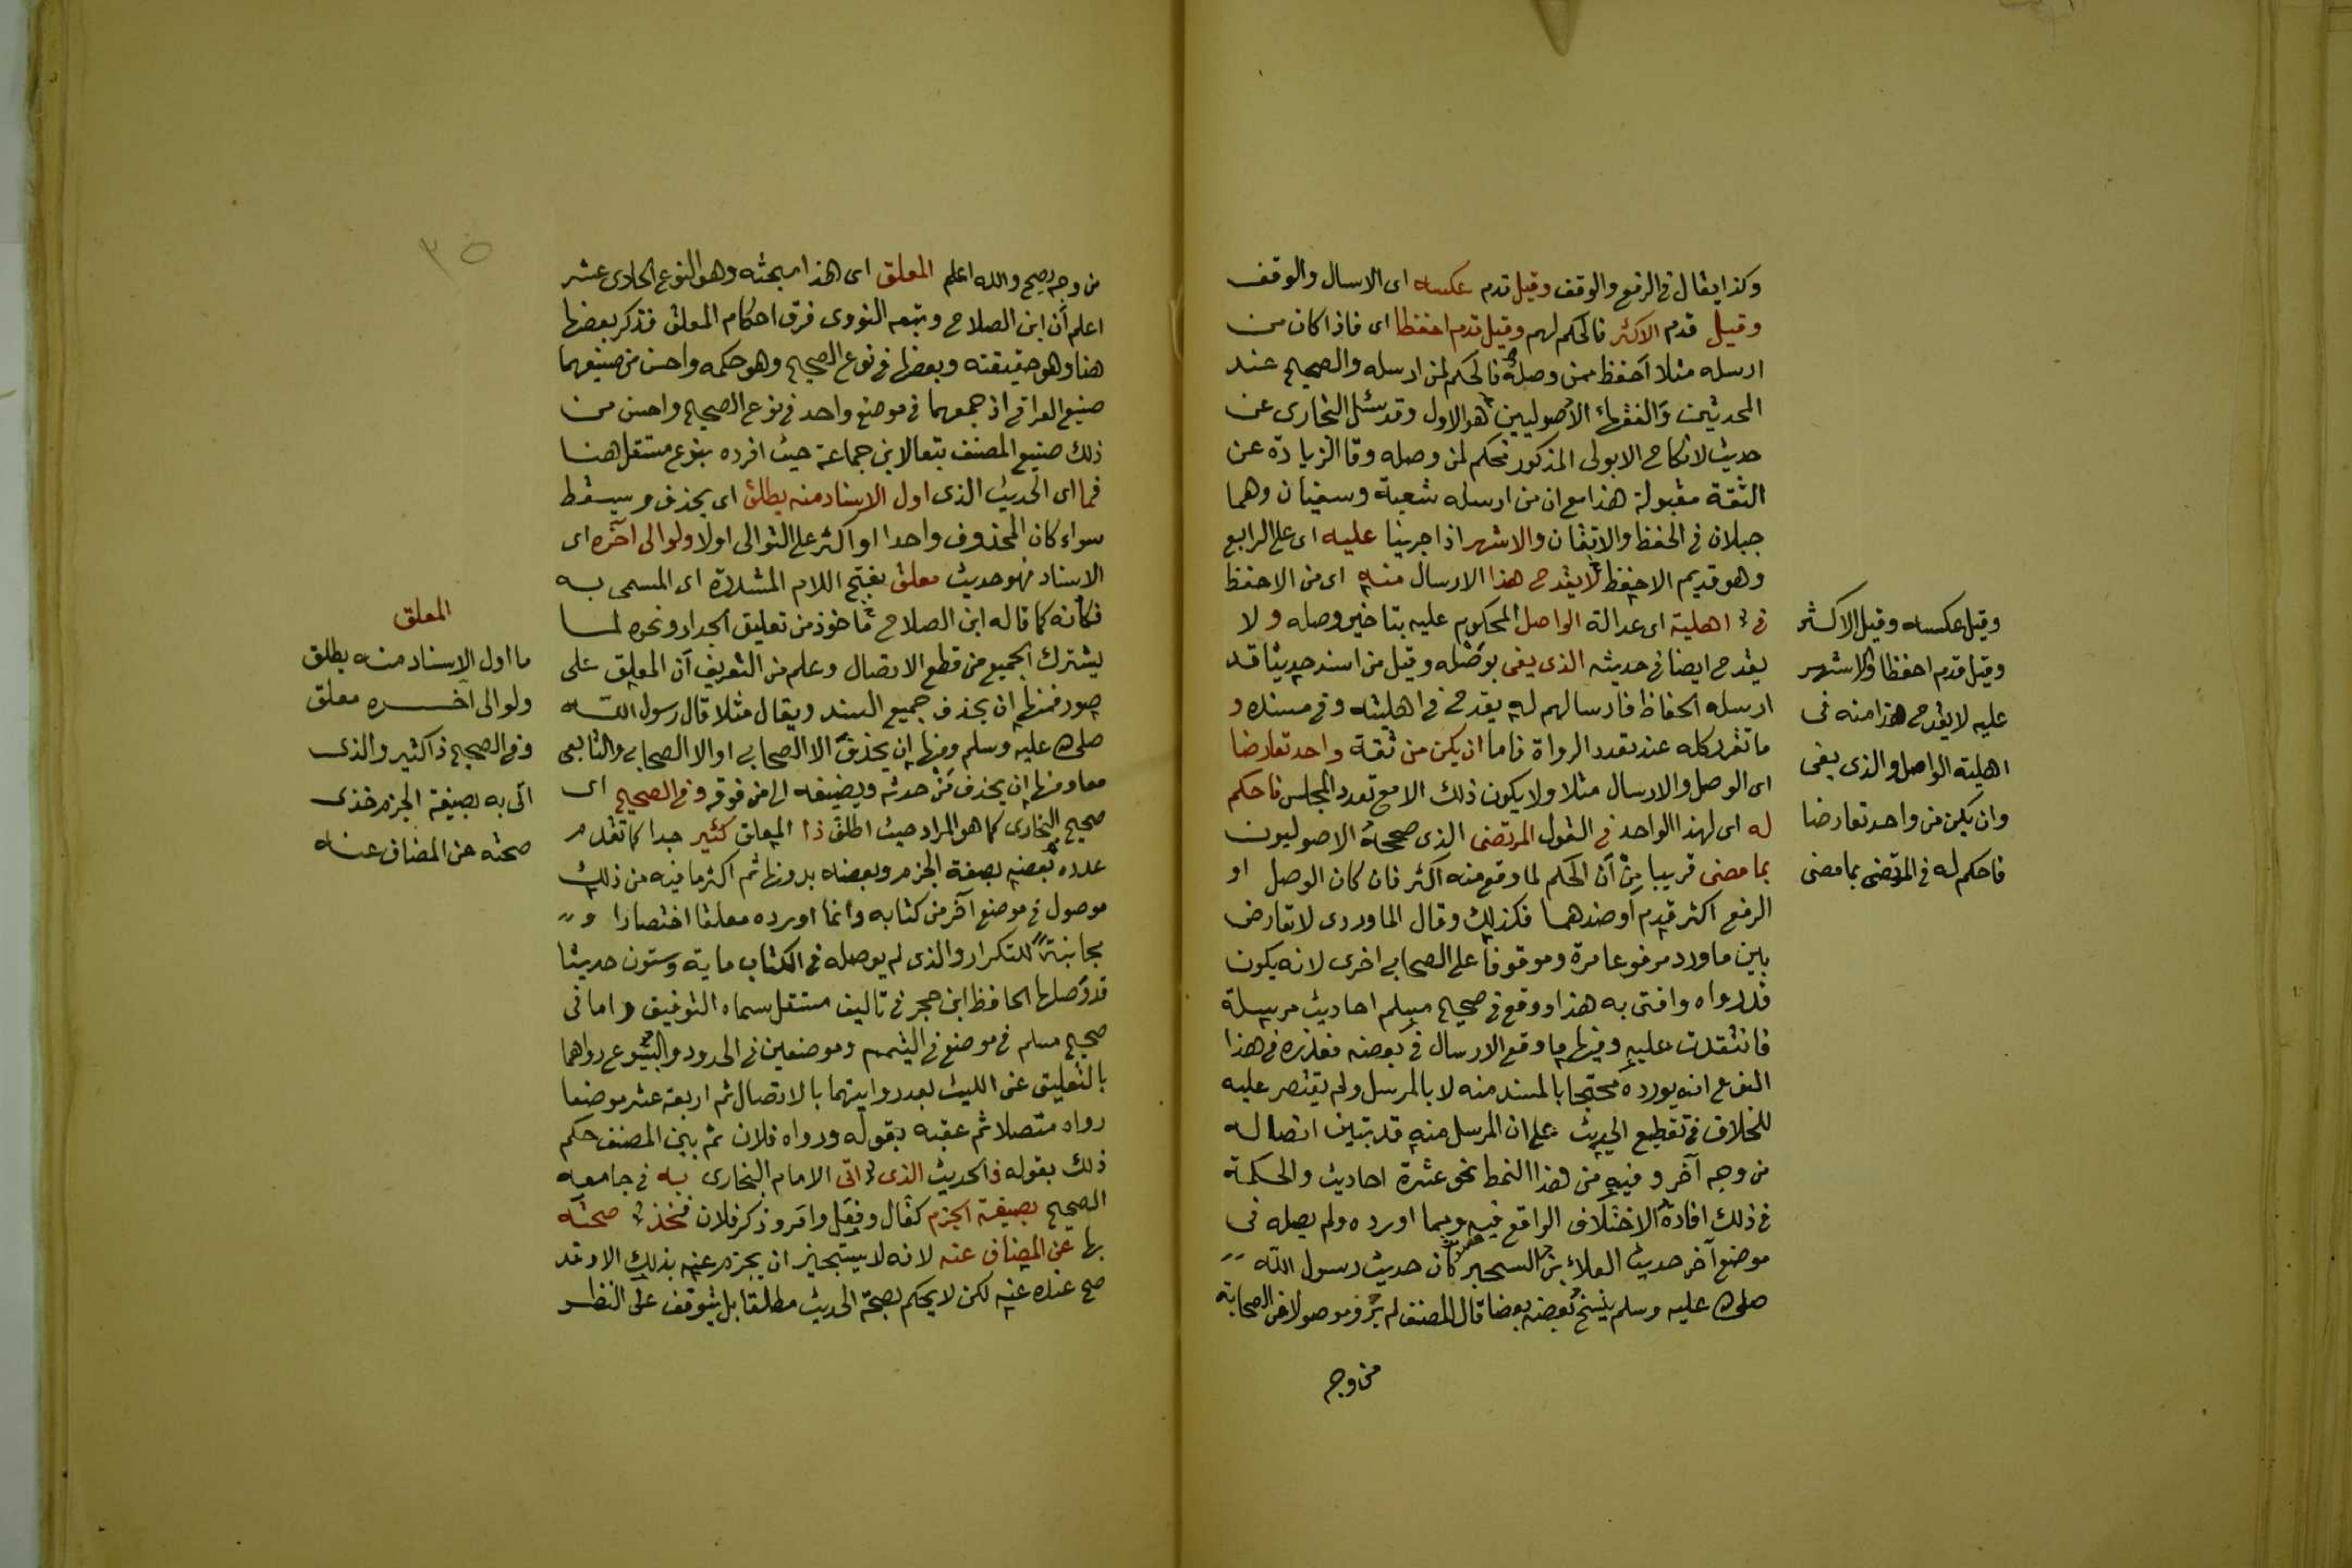 وكذا يقال في الرفع والوقف وقيل قدم عكسه اى الارسال والوقف
وقيل قدم الاكثر فالحكم لهم وقيل قدم احفظا اى فاذا كان من
ارسله مثلا احفظ ممن وصله فالحكم لمن ارسله والصحيح عند
المحدثين والفقهاء الاصوليين هو الاول وقد سئل البخارى عن
حديث لا نكاح الا بولى المذكور فحكم لمن وصله وقال الزيادة عن
الثقة مقبولة هذا مع ان من ارسله شعبة وسفيان وهما
جبلان في الحفظ والاتقان والاشهر اذا جرينا عليه اى على الرابع
وهو قديم الاحفظ لا يقدح هذا الارسال منه اى من الاحفظ
في اهلية اى عدالة الواصل المحكوم عليه بتاخير وصله ولا
يقدح ايضا في حديثه الذى يفى بوصله وقيل من اسند حديثا قد
ارسله الحفاظ فارسالهم له يقدح في اهليته وفي مسنده و
ما تقرر كله عند تعدد الرواة فاما ان يكن من ثقة واحد تعارضا
اى الوصل والارسال مثلا ولا يكون ذلك الا مع تعدد المجلس فاحكم
له اى لهذا الواحد في القول المرتضى الذى صححه الاصوليون
بما مضى قريبا من ان الحكم لما وقع منه اكثر فان كان الوصل او
الرفع اكثر قدم او ضدهما فكذلك وقال الماوردى لا تعارض
بين ما ورد مرفوعا مرة وموقوفا على الصحابي اخرى لانه يكون
قد رواه وافتى به هذا ووقع في صحيح مسلم احاديث مرسلة
فانتقدت عليه وفيها ما وقع الارسال في بعضه فعذره في هذا
النوع انه يورده محتجا بالمسند منه لا بالمرسل ولم يقتصر عليه
للخلاف في تقطيع الحديث على ان المرسل منه قد تبين اتصاله
من وجه آخر وفيه من هذا النمط نحو عشرة احاديث والحكمة
في ذلك افادة الاختلاف الواقع فيه ومما اورده ولم يصله في
موضع آخر حديث العلاء بن السحير كان حديث رسول الله
صلى الله عليه وسلم ينسخ بعضه بعضا قال المصنف لم يرو موصولا عن الصحابة
من وجه
وقيل عكسه وقيل الاكثر
وقيل قدم احفظا والاشهر
عليه لا يقدح هذا منه في
اهلية الواصل والذى يفى
وان يكن من واحد تعارضا
فاحكم له في المرتضى بما مضى
٣٥
من وجه يصح والله اعلم المعلق اى هذا مبحثه وهو النوع الحادى عشر
اعلم أن ابن الصلاح وتبعه النووى فرق احكام المعلق فذكر بعضها
هنا وهو حقيقته وبعضها في نوع الصحيح وهو حكمه واحسن من صنيعهما
صنيع العراقى اذ جمعهما في موضع واحد في نوع الصحيح واحسن من
ذلك صنيع المصنف تبعا لابن جماعة حيث افرده بنوع مستقل هنا
فما اى الحديث الذى اول الاسناد منه يطلق اى يحذف ويسقط
سواء كان المحذوف واحدا او اكثر على التوالى اولا ولو الى آخره اى
الاسناد فهو حديث معلق بفتح اللام المشددة اى المسمى به
فكأنه كما قاله ابن الصلاح مأخوذ من تعليق الجدار ونحوه لما
يشترك الجميع من قطع الاتصال وعلم من التعريف أن المعلق على
صور فمنها ان يحذف جميع السند ويقال مثلا قال رسول الله
صلى الله عليه وسلم ومنها ان يحذف الا الصحابي او الا الصحابي والتابعى
معا ومنها ان يحذف من حدثه ويضيفه الى من فوقه وفي الصحيح اى
صحيح البخارى كما هو المراد حيث اطلق ذا المعلق كثير جدا كما تقدم
عدده بعضه بصيغة الجزم وبعضه بدونها ثم اكثر ما فيه من ذلك
موصول في موضع آخر من كتابه وانما اورده معلقا اختصارا و
مجانبة للتكرار والذى لم يوصله في الكتاب ماية وستون حديثا
قد وصلها الحافظ ابن حجر في تاليف مستقل سماه التوفيق واما في
صحيح مسلم في موضع في التيمم وموضعين في الحدود والبيوع رواهما
بالتعليق عن الليث بعد روايتهما بالاتصال ثم اربعة عشر موضعا
رواه متصلا ثم عقبه بقوله ورواه فلان ثم بين المصنف حكم
ذلك بقوله فالحديث الذى اتى الامام البخارى به في جامعه
الصحيح بصيغة الجزم كقال وفعل وامر وذكر فلان فخذ صحته
بها عن المضاف عنه لانه لا يستجيز ان يجزم عنه بذلك الا وقد
صح عنده عنه لكن لا يحكم بصحة الحديث مطلقا بل يتوقف على النظر
المعلق
ما اول الاسناد منه يطلق
ولو الى آخره معلق
وفي الصحيح ذا كثير والذى
اتى به بصيغة الجزم خذى
صحته عن المضاف عنه